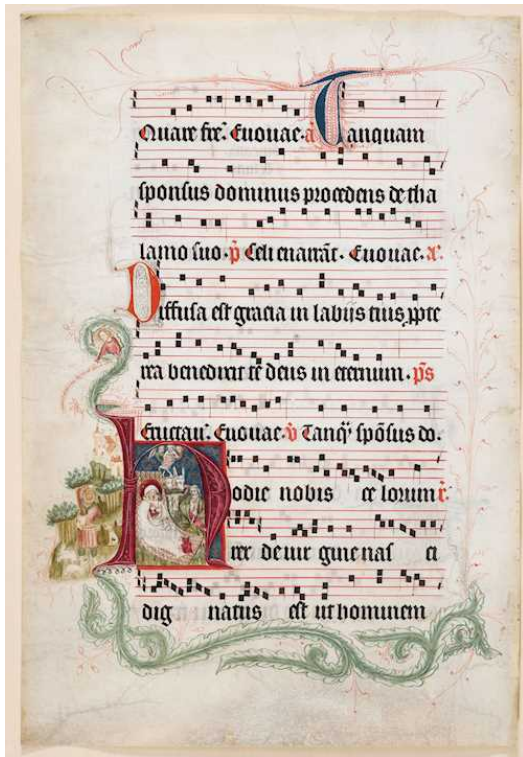 Quare fre. Euouae. a Tanquam
sponsus dominus procedens de tha
lamo suo. p Celi enarrāt. Euouae. a.
Diffusa est gracia in labijs tuis ppte
rea benedixit te deus in eternum. ps
Eructau. Euouae. v Tanq̄ spōsus do.
Hodie nobis ce lorum r.
rex de uir gine nas ci
dig natus est ut hominem